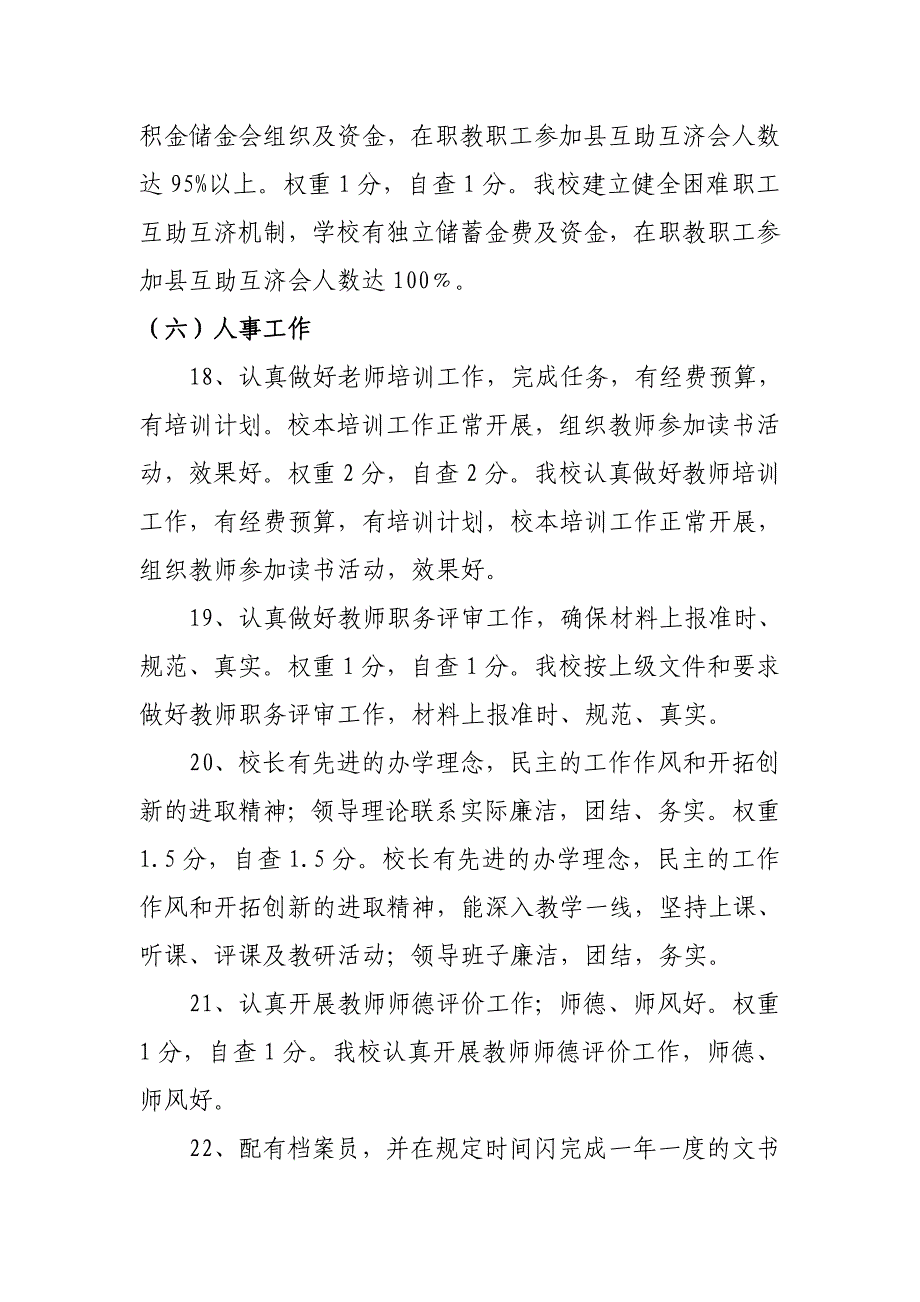 积金储金会组织及资金，在职教职工参加县互助互济会人数
达 95%以上。权重 1 分，自查 1 分。我校建立健全困难职工
互助互济机制，学校有独立储蓄金费及资金，在职教职工参
加县互助互济会人数达 100％。
（六）人事工作
18、认真做好老师培训工作，完成任务，有经费预算，
有培训计划。校本培训工作正常开展，组织教师参加读书活
动，效果好。权重 2 分，自查 2 分。我校认真做好教师培训
工作，有经费预算，有培训计划，校本培训工作正常开展，
组织教师参加读书活动，效果好。
19、认真做好教师职务评审工作，确保材料上报准时、
规范、真实。权重 1 分，自查 1 分。我校按上级文件和要求
做好教师职务评审工作，材料上报准时、规范、真实。
20、校长有先进的办学理念，民主的工作作风和开拓创
新的进取精神；领导理论联系实际廉洁，团结、务实。权重
1.5 分，自查 1.5 分。校长有先进的办学理念，民主的工作
作风和开拓创新的进取精神，能深入教学一线，坚持上课、
听课、评课及教研活动；领导班子廉洁，团结，务实。
21、认真开展教师师德评价工作；师德、师风好。权重
1 分，自查 1 分。我校认真开展教师师德评价工作，师德、
师风好。
22、配有档案员，并在规定时间闪完成一年一度的文书